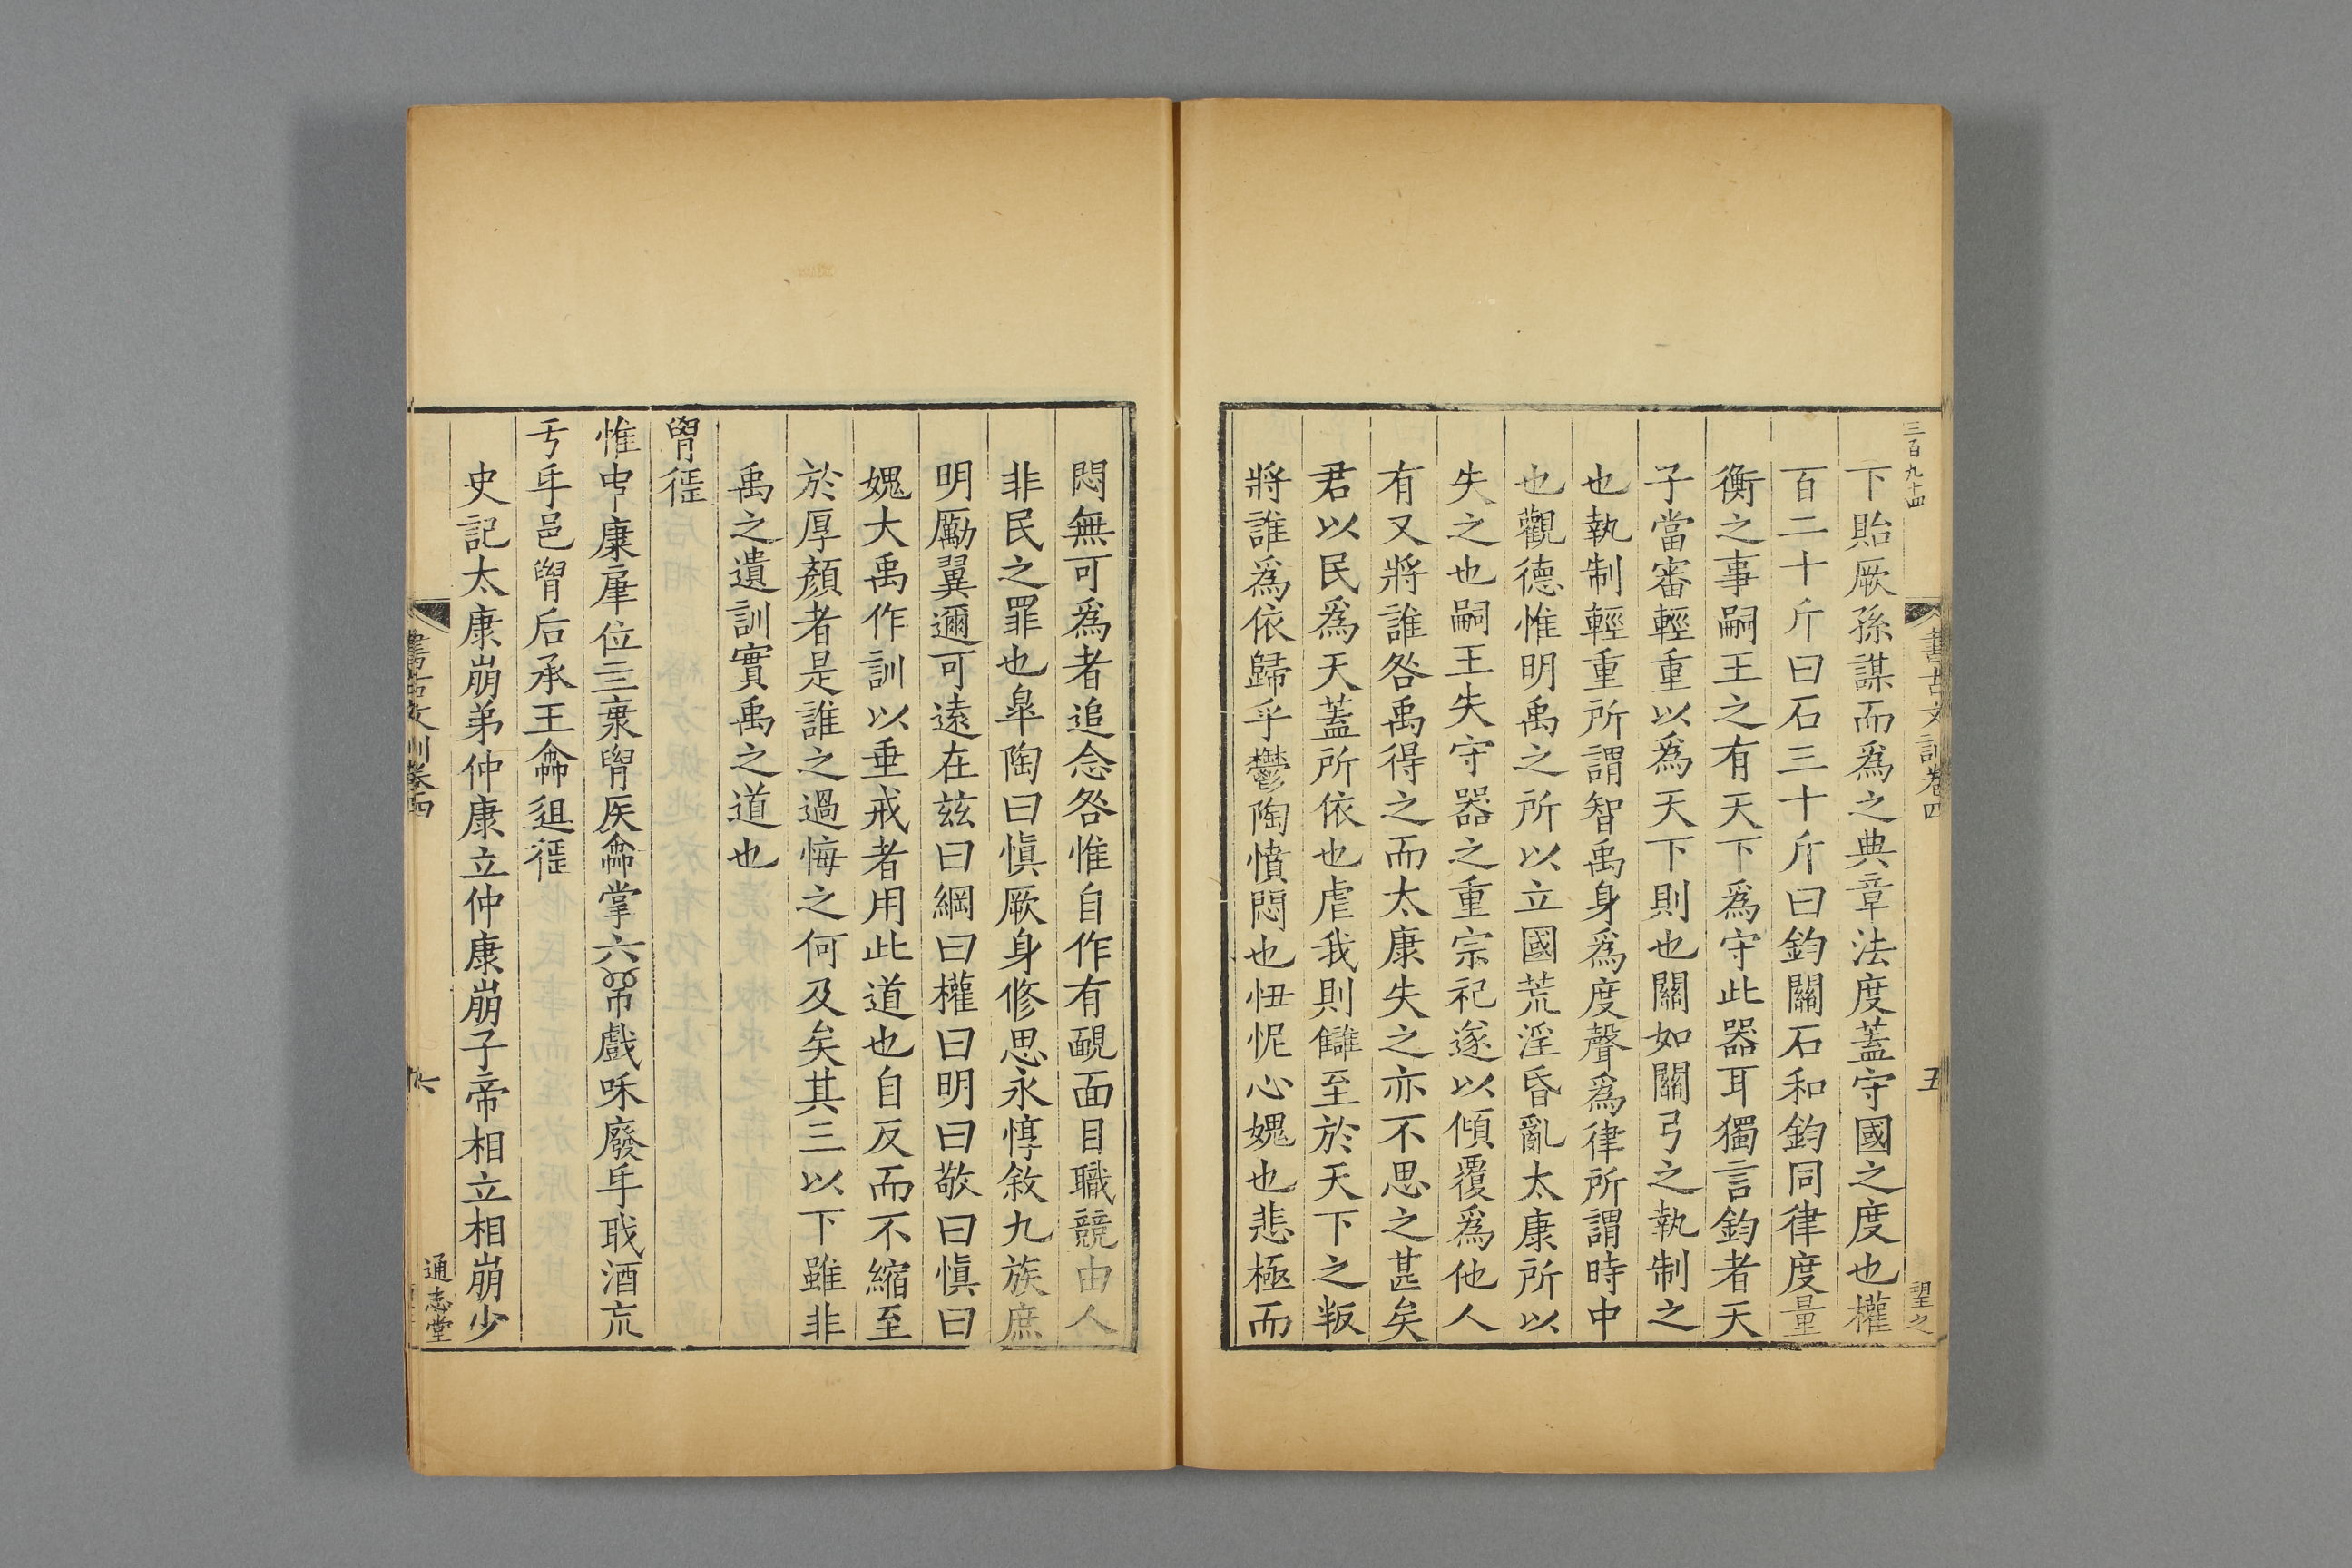 三百九十四
書古文訓卷四
五
望之
下貽厥孫謀而爲之典章法度蓋守國之度也權
百二十斤曰石三十斤曰鈞關石和鈞同律度量
衡之事嗣王之有天下爲守此器耳獨言鈞者天
子當審輕重以爲天下則也關如關弓之執制之
也執制輕重所謂智禹身爲度聲爲律所謂時中
也觀德惟明禹之所以立國荒淫昏亂太康所以
失之也嗣王失守器之重宗祀遂以傾覆爲他人
有又將誰咎禹得之而太康失之亦不思之甚矣
君以民爲天蓋所依也虐我則讎至於天下之叛
將誰爲依歸乎鬱陶憤悶也忸怩心媿也悲極而
悶無可爲者追念咎惟自作有靦面目職競由人
非民之罪也皐陶曰愼厥身修思永惇敘九族庶
明勵翼邇可遠在兹曰綱曰權曰明曰敬曰愼曰
媿大禹作訓以垂戒者用此道也自反而不縮至
於厚顏者是誰之過悔之何及矣其三以下雖非
禹之遺訓實禹之道也
惟康位三掌六戲廢酒
邑后承王徂
史記太康崩弟仲康立仲康崩子帝相立相崩少
書古文訓卷四
六
通志堂